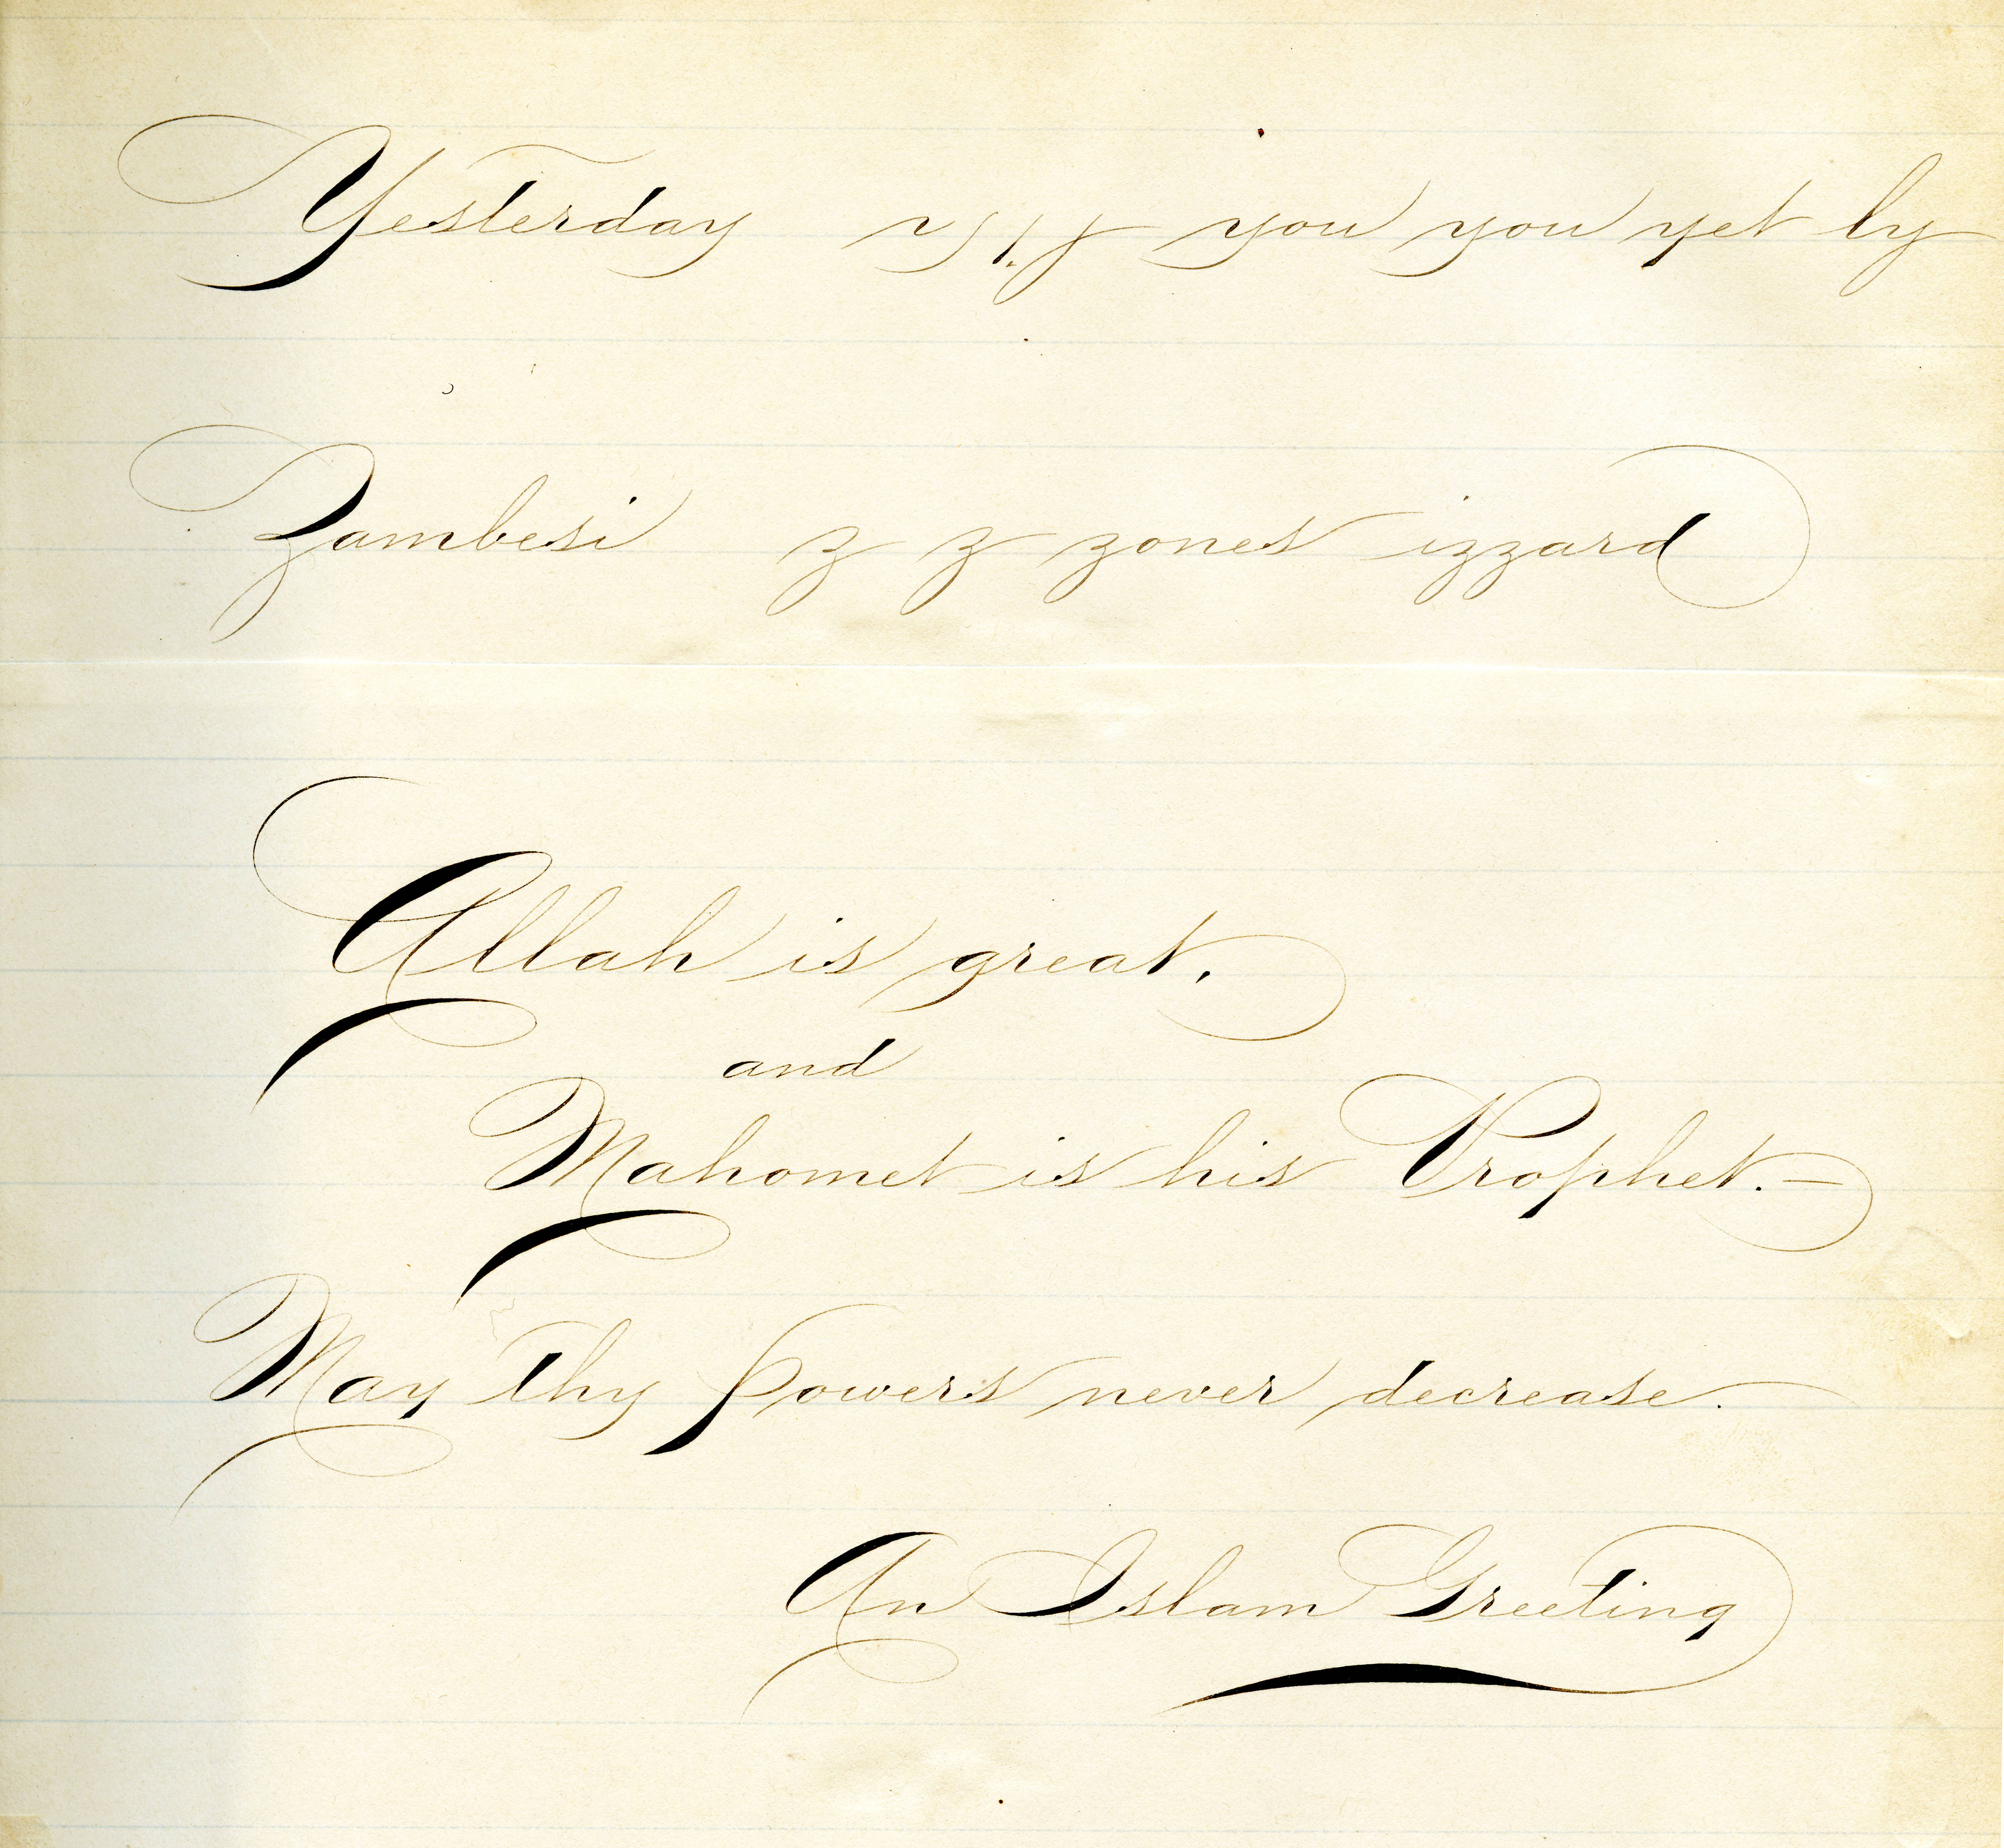 Yesterday you you yet ly
Zambesi z z zones izzard
Allah is great,
and
Mahomet is his Prophet.—
May thy powers never decrease.
An Islam Greeting